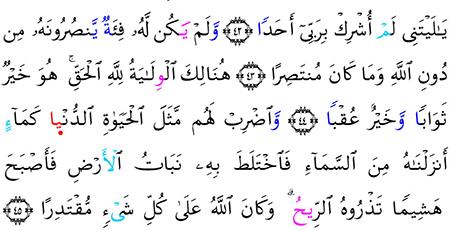 يَٰلَيْتَنِى لَمْ أُشْرِكْ بِرَبِّىٓ أَحَدًا ۝٤٢ وَلَمْ يَكُن لَّهُۥ فِئَةٌ يَنصُرُونَهُۥ مِن
دُونِ اللَّهِ وَمَا كَانَ مُنتَصِرًا ۝٤٣ هُنَالِكَ الْوِلَٰيَةُ لِلَّهِ الْحَقِّ ۚ هُوَ خَيْرٌ
ثَوَابًا وَخَيْرٌ عُقْبًا ۝٤٤ وَاضْرِبْ لَهُم مَّثَلَ الْحَيَوٰةِ الدُّنْيا كَمَآءٍ
أَنزَلْنَٰهُ مِنَ السَّمَآءِ فَاخْتَلَطَ بِهِۦ نَبَاتُ الْأَرْضِ فَأَصْبَحَ
هَشِيمًا تَذْرُوهُ الرِّيحُ ۗ وَكَانَ اللَّهُ عَلَىٰ كُلِّ شَىْءٍ مُّقْتَدِرًا ۝٤٥